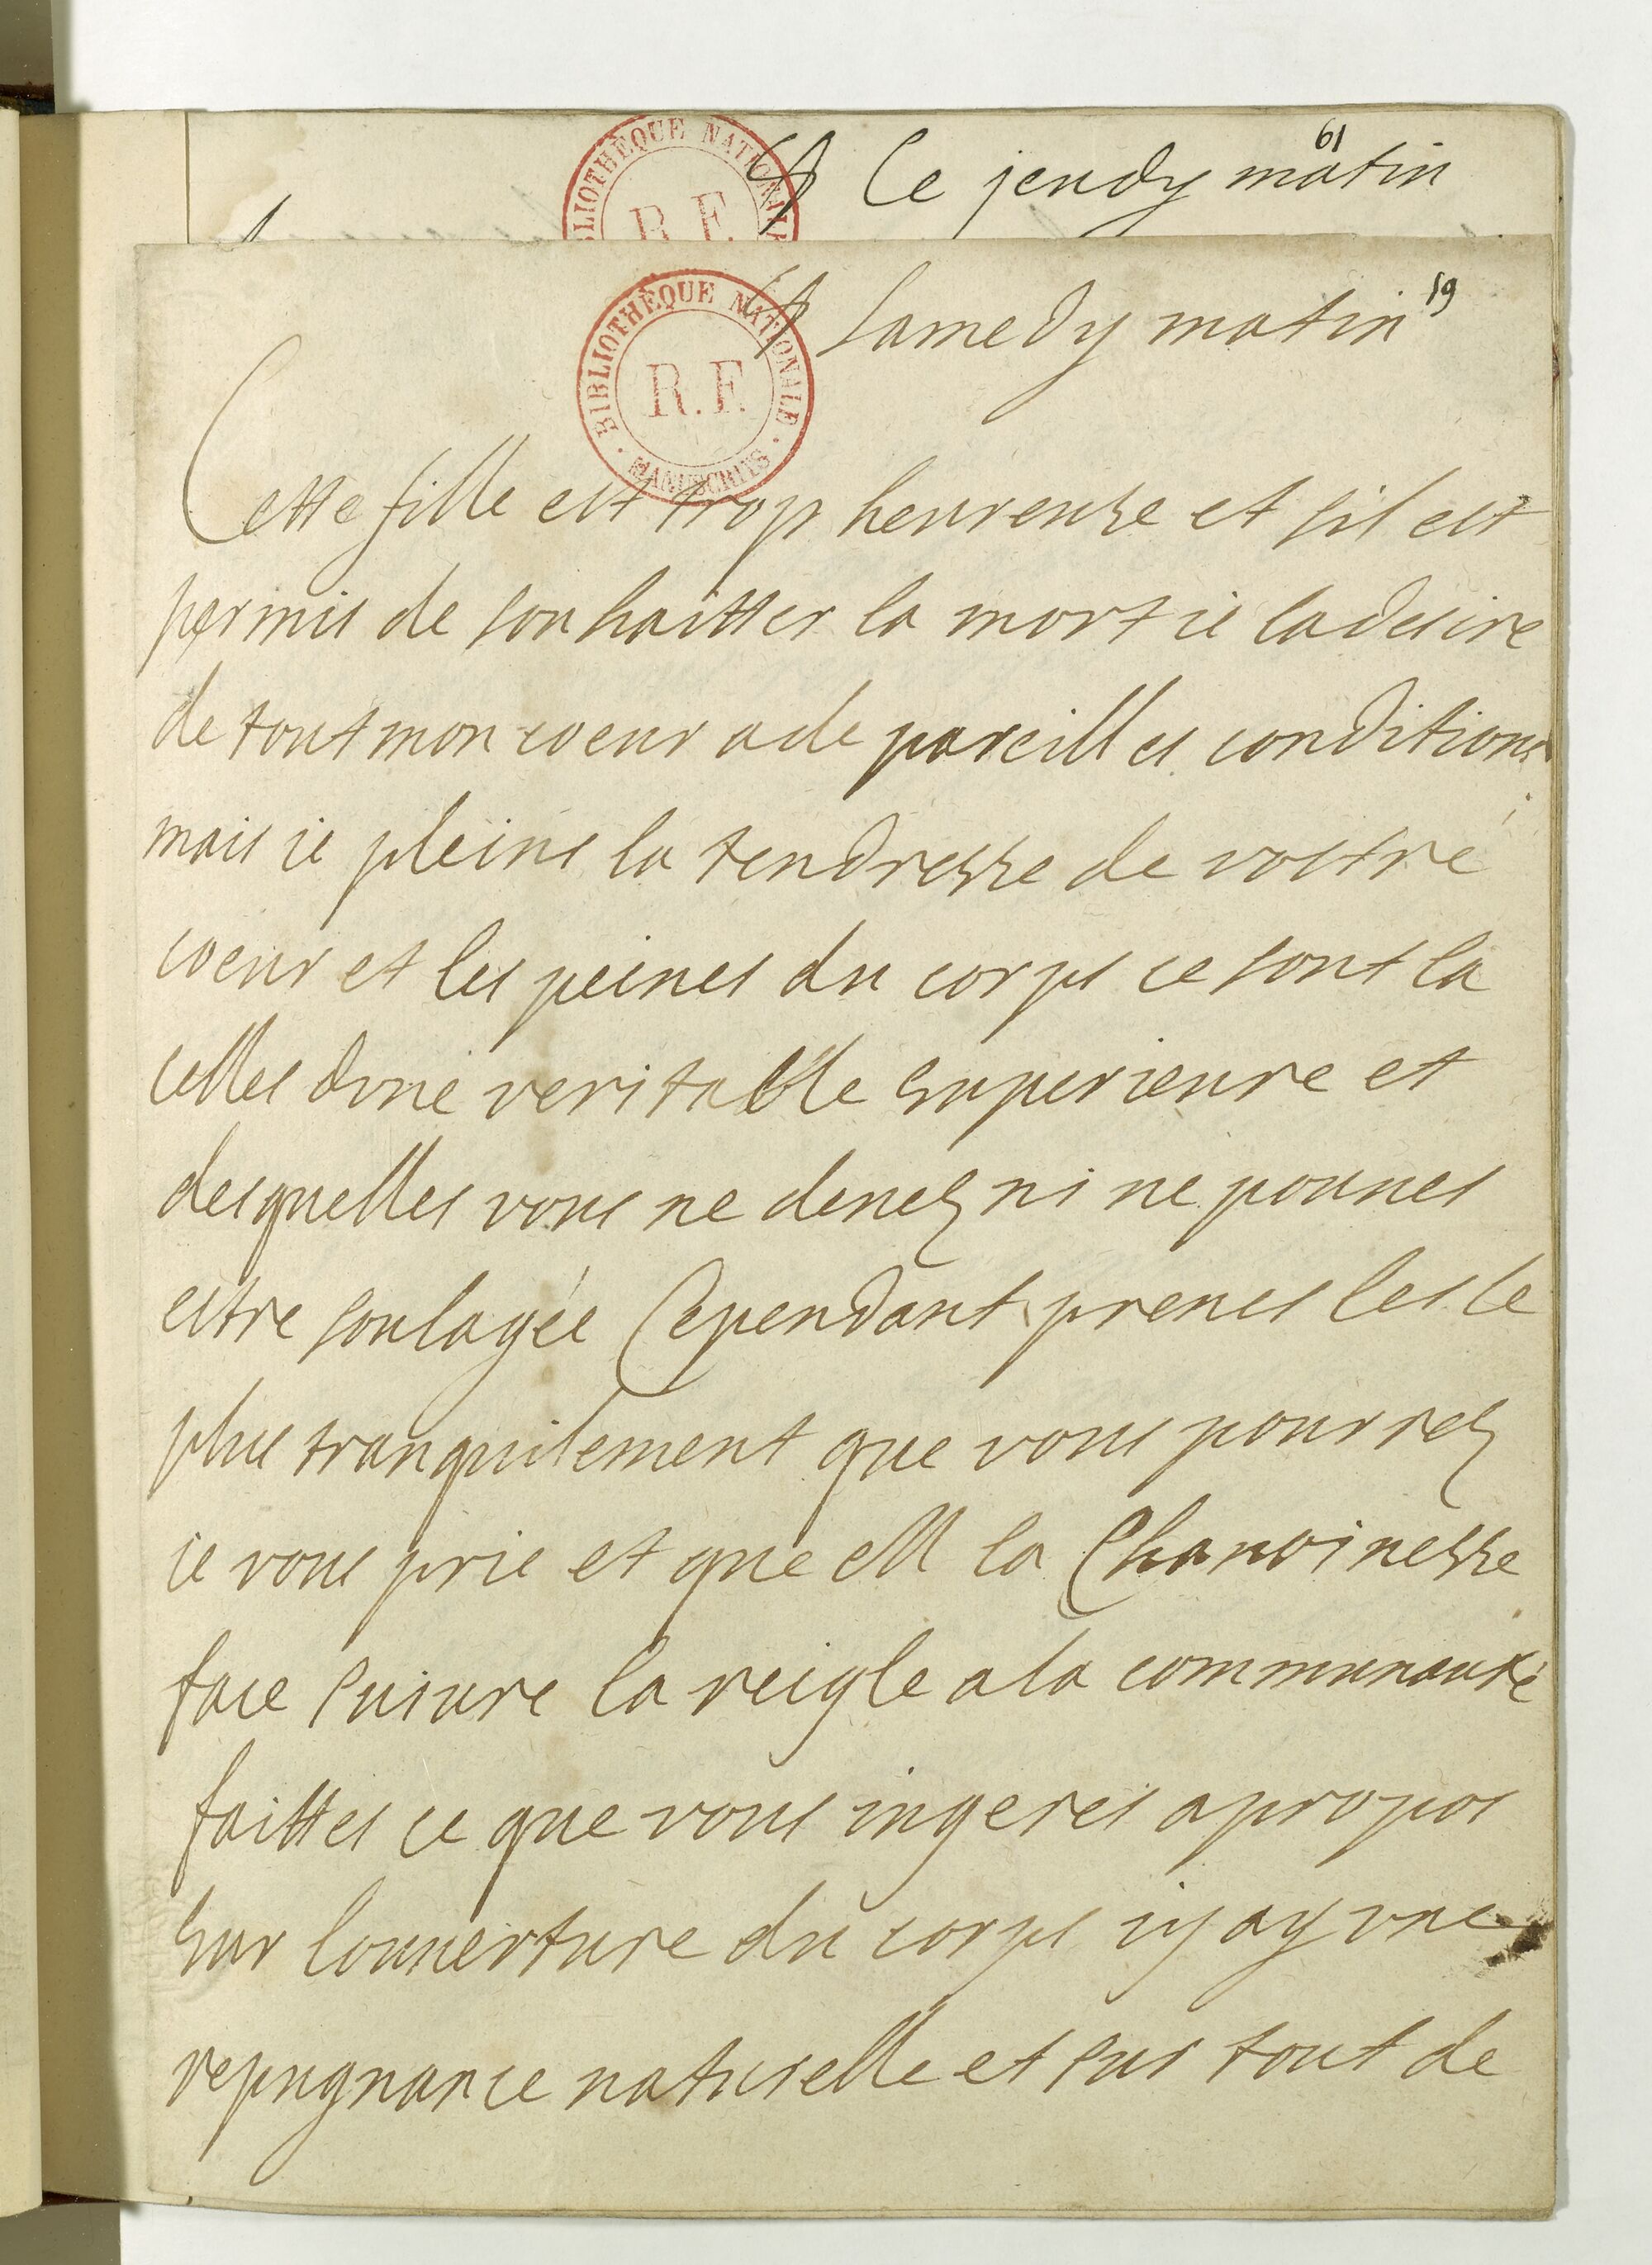 61
Ce jeudy matin
BIBLIOTHÈQUE NATIONALE
R.F.
59
Samedy matin
BIBLIOTHÈQUE NATIONALE
R.F.
MANUSCRITS
Cette fille est trop heureuse et sil est
permis de souhaitter la mort ie la desire
de tout mon coeur a de pareilles conditions
mais ie pleins la tendresse de vostre
coeur et les peines du corps ce sont la
celles dune veritable superieure et
desquelles vous ne deuez ni ne pouues
estre soulagée Cependant prenes les le
plus tranquilement que vous pourrez
ie vous prie et que M la Chanoinesse
face suiure la reigle a la communauté
faittes ce que vous iugeres apropos
sur louuerture du corps iy ay vne
repugnance naturelle et sur tout de